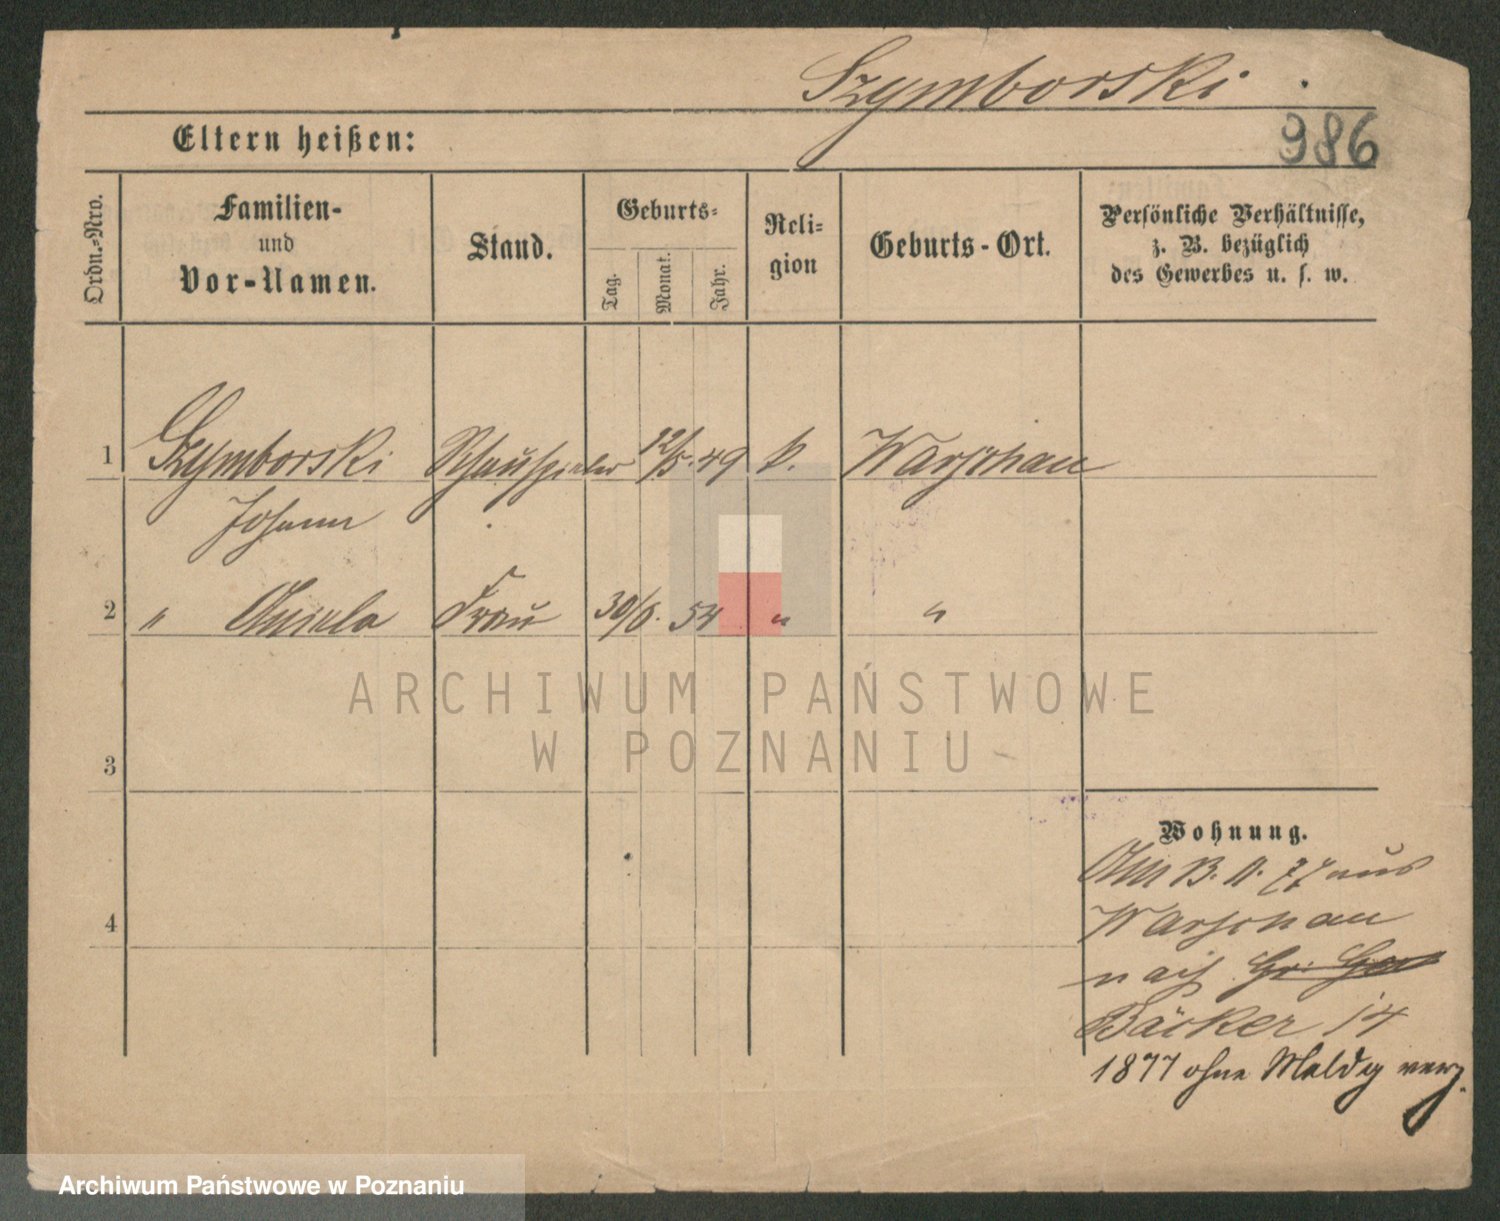 Szymborski
986
Eltern heißen:
Ordn.-Nro.
Familien-
und
Vor-Namen.
Stand.
Geburts-
Tag.
Monat.
Jahr.
Reli-
gion
Geburts-Ort.
Persönliche Verhältnisse,
z. B. bezüglich
des Gewerbes u. s. w.
1 Szymborski Schauspieler 12/5. 49 k. Warschau
Johann
2 " Aniela Frau 30/6. 54 " "
3
4
ARCHIWUM PAŃSTWOWE
W POZNANIU
Wohnung.
B. A. 77 aus
Warschau
nach
Bäcker 14
1877 ohne Meldg verz.
Archiwum Państwowe w Poznaniu